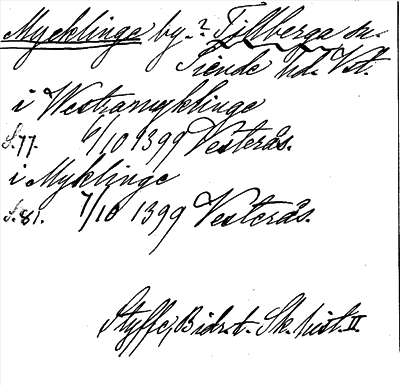 Mycklinge by.? Tillberga sn.
Siende hd. Vstl.
i Westramyklinge
S.77. 6/10 1399 Vesterås.
i Myklinge
S.81. 7/10 1399 Vesterås.
Styffe, Bidr. t. Sk. hist. II.